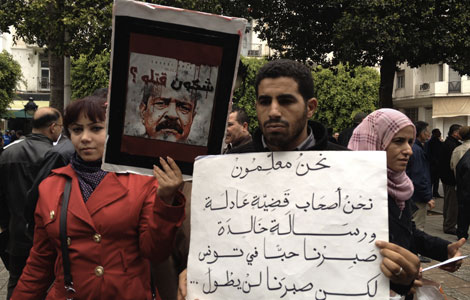 شكون قتلو ؟
نحن معلمون
نحن أصحاب قضية عادلة
ورسالة خالدة
صبرنا حبًا في تونس
لكن صبرنا لن يطول ...